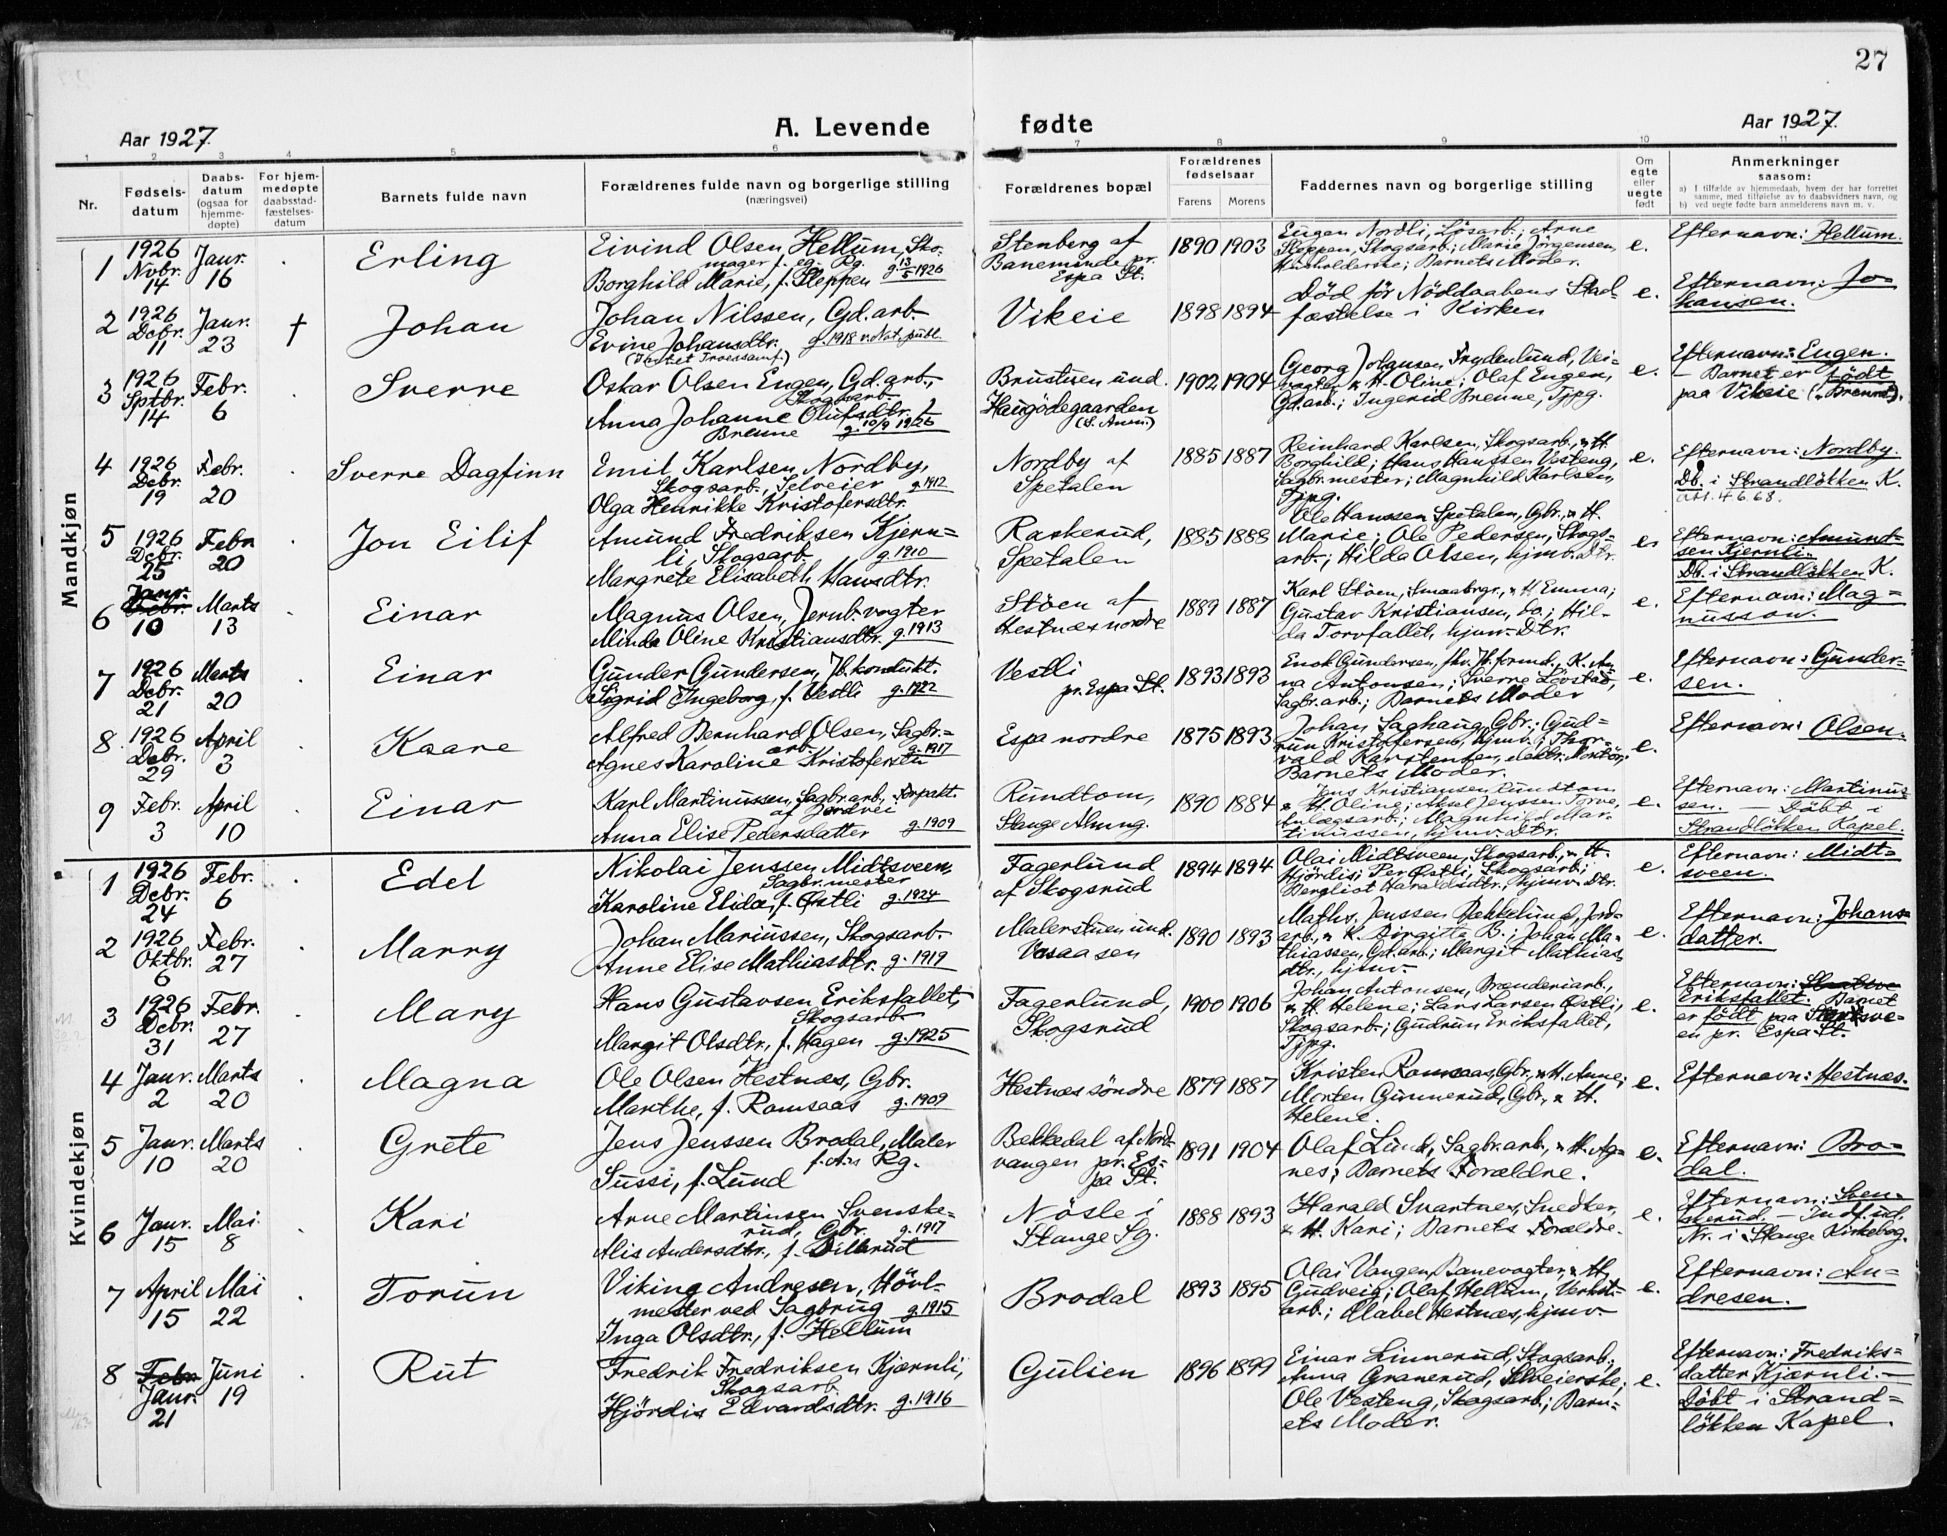 27
Aar 1927.
A. Levende
fødte
Aar 1927.
1 2 3 4 5 6 7 8 9 10 11
Nr.
Fødsels-
datum
Daabs-
datum
(ogsaa for
hjemme-
døpte)
For hjem-
medøpte
daabsstad-
fæstelses-
datum
Barnets fulde navn
Forældrenes fulde navn og borgerlige stilling
(næringsvei)
Forældrenes bopæl
Forældrenes
fødselsaar
Farens Morens
Faddernes navn og borgerlige stilling
Om
egte
eller
uegte
født
Anmerkninger
saasom:
a) I tilfælde av hjemmedaab, hvem der har forrettet
samme, med tilføielse av to daabsvidners navn, og
b) ved uegte fødte barn anmelderens navn m. v.
Mandkjøn
1
1926
Novbr.
14
Janr.
16
Erling
Eivind Olsen Hellum, Sko-
mager f. eg. Rg.
Borghild Marie, f. Sleppen g. 13/5 1926
Stenberg af
Baneminde pr.
Espa St.
1890 1903
Eugen Nordli, Løsarb.; Arne
Sleppen, Skogsarb.; Marie Jørgensen,
Husholderske; Barnets Moder.
e.
Efternavn: Hellum.
2
1926
Decbr.
11
Janr.
23
†
Johan
Johan Nilssen, Gd.arb.
Evine Johansdtr. g. 1918 v. Not. publ.
Vikeie
1898 1894
Død før Nøddaabens Stad-
fæstelse i Kirken
e.
Efternavn: Jo-
hansen.
3
1926
Sptbr.
14
Febr.
6
Sverre
Oskar Olsen Eugen, Gd.arb.,
Skogsarb.
Anna Johanne Olufsdtr. f.
Brenne g. 10/9 1926
Brustuen und.
Haugødegaarden
1902 1904
Georg Johansen Frydenlund, Vei-
vogter, & H. Oline; Olaf Eugen,
Gd.arb.; Ingerid Brenne, Tjpg.
e.
Efternavn: Eugen.
– Barnet er født
paa Vikeie
4
1926
Debr.
19
Febr.
20
Sverre Dagfinn
Emil Karlsen Nordby,
Skogsarb., Selveier g. 1912
Olga Henrikke Kristofersdtr.
Nordby af
Spetalen
1885 1887
Reinhard Karlsen, Skogsarb., & H.
Borghild; Hans Hanssen Vesteng,
Sagbr.mester; Magnhild Karlsen,
Tjpg.
e.
Efternavn: Nordby.
Db. i Strandløkken K.
att. 4.6.68.
5
1926
Debr.
25
Febr.
20
Jon Eilif
Amund Fredriksen Kjern-
li, Skogsarb. g. 1910
Margrete Elisabeth Hansdtr.
Raskerud,
Spetalen
1885 1888
Ole Hanssen Spetalen, Gbr., & H.
Marie; Ole Pedersen, Skogs-
arb.; Hilda Olsen, hjmv. Dtr.
e.
Efternavn: Amund-
sen Kjernli.
Db. i Strandløkken K.
6
Janr.
10
Marts
13
Einar
Magnus Olsen, Jernb.vogter
Minda Oline Kristiansdtr. g. 1913
Støen af
Hestnæs nordre
1889 1887
Karl Støen, Smaabrgr., & H. Emma;
Gustav Kristiansen, do.; Hil-
da Torvfallet, hjmv. Dtr.
e.
Efternavn: Mag-
nusson.
7
1926
Debr.
21
Marts
20
Einar
Gunder Gundersen, Jb.kondukt.
Sigrid Ingeborg, f. Vestli g. 1922
Vestli
pr. Espa St.
1893 1893
Enok Gundersen, fhv. Jb.formd., K. An-
na Antonsen; Sverre Løvstad,
Sagbr.arb.; Barnets Moder
e.
Efternavn: Gunder-
sen.
8
1926
Debr.
29
April
3
Kaare
Alfred Bernhard Olsen, Sagbr.-
arb. g. 1917
Agnes Karoline Kristofersen
Espa nordre
1875 1893
Johan Saghaug, Gbr.; Gud-
run Kristofersen, hjmv.; Thor-
vald Karstensen, elektr. Montør;
Barnets Moder.
e.
Efternavn: Olsen.
9
Febr.
3
April
10
Einar
Karl Martinussen, Sagbr.arb., Forpakt.
af Jordvei
Anna Elise Pedersdatter g. 1909
Rundtom,
Stange Almng.
1890 1884
Jens Kristiansen Rundtom
& H. Oline; Aksel Jenssen Torve,
Anlægsarb.; Magnhild Mar-
tinussen, hjmv. Dtr.
e.
Efternavn: Martinus-
sen. – Døbt i
Strandløkken Kapel.
Kvindekjøn
1
1926
Debr.
24
Febr.
6
Edel
Nikolai Jenssen Midtsveen,
Sagbr.mester
Karoline Elida, f. Østli g. 1924
Fagerlund
af Skogsrud
1894 1894
Olai Midtsveen, Skogsarb., & H.
Hjørdis; Per Østli, Skogsarb.;
Bergliot Haraldsdtr., hjmv. Dtr.
e.
Efternavn: Midt-
sveen.
2
1926
Oktbr.
6
Febr.
27
Marry
Johan Mariussen, Skogsarb.
Anne Elise Mathiasdtr. g. 1919
Malerstuen und.
Vesaasen
1890 1893
Maths. Jenssen Bækkelund, Jord-
arb., & K. Birgitta B.; Johan Ma-
thiassen, Gd.arb.; Margit Mathias-
dtr., hjmv.
e.
Efternavn: Johans-
datter.
3
1926
Debr.
31
Febr.
27
Mary
Hans Gustavsen Eriksfallet,
Skogsarb.
Margit Olsdtr., f. Hagen g. 1925
Fagerlund,
Skogsrud
1900 1906
Johan Antonsen, Brænderiarb.,
& H. Helene; Lars Larsen Østli,
Skogsarb.; Gudrun Eriksfallet,
Tjpg.
e.
Efternavn:
Eriksfallet. Barnet
er født paa
en pr. Espa St.
4
Janr.
2
Marts
20
Magna
Ole Olsen Hestnæs, Gbr.
Marthe, f. Ramsaas g. 1909
Hestnæs søndre
1879 1887
Kristen Ramsaas, Gbr., & H. Anne;
Morten Gunnerud, Gbr., & H.
Helene.
e.
Efternavn: Hestnæs.
5
Janr.
10
Marts
20
Grete
Jens Jenssen Brodal, Maler
f. A.n Rg.
Sussi, f. Lund
Bækkedal af Nord-
vangen pr. Es-
pa St.
1891 1904
Olaf Lund, Sagbr.arb., & H. Ag-
nes; Barnets Forældre.
e.
Efternavn: Bro-
dal.
6
Janr.
15
Mai
8
Kari
Arne Martinsen Svenske-
rud, Gbr. g. 1917
Alis Andersdtr., f. Dillerud
Nøsle i
Stange Sg.
1888 1893
Harald Svartnes, Snedker,
& H. Kari; Barnets Forældre.
e.
Efternavn: Sven-
skerud. – Indf. ul.
Nr. i Stange Kirkebog.
7
April
15
Mai
22
Torun
Viking Andresen, Høvl-
mester ved Sagbrug g. 1915
Inga Olsdtr., f. Hellum
Brodal
1893 1895
Olai Vangen, Banevogter, & H.
Gudveig; Olaf Hellum, Verkst.-
arb.; Mabel Hestnæs, hjmv.
e.
Efternavn: An-
dresen.
8
Febr.
Janr.
21
Juni
19
Rut
Fredrik Fredriksen Kjærnli,
Skogsarb.
Hjørdis Edvardsdtr. g. 1916
Gulien
1896 1899
Einar Linnerud, Skogsarb.;
Anna Granerud, Selveierske;
Ole Vesteng, Skogsarb.; Barn-
ets Moder.
e.
Efternavn: Fredriks-
datter Kjærnli. –
Døbt i Strand-
løkken Kapel.